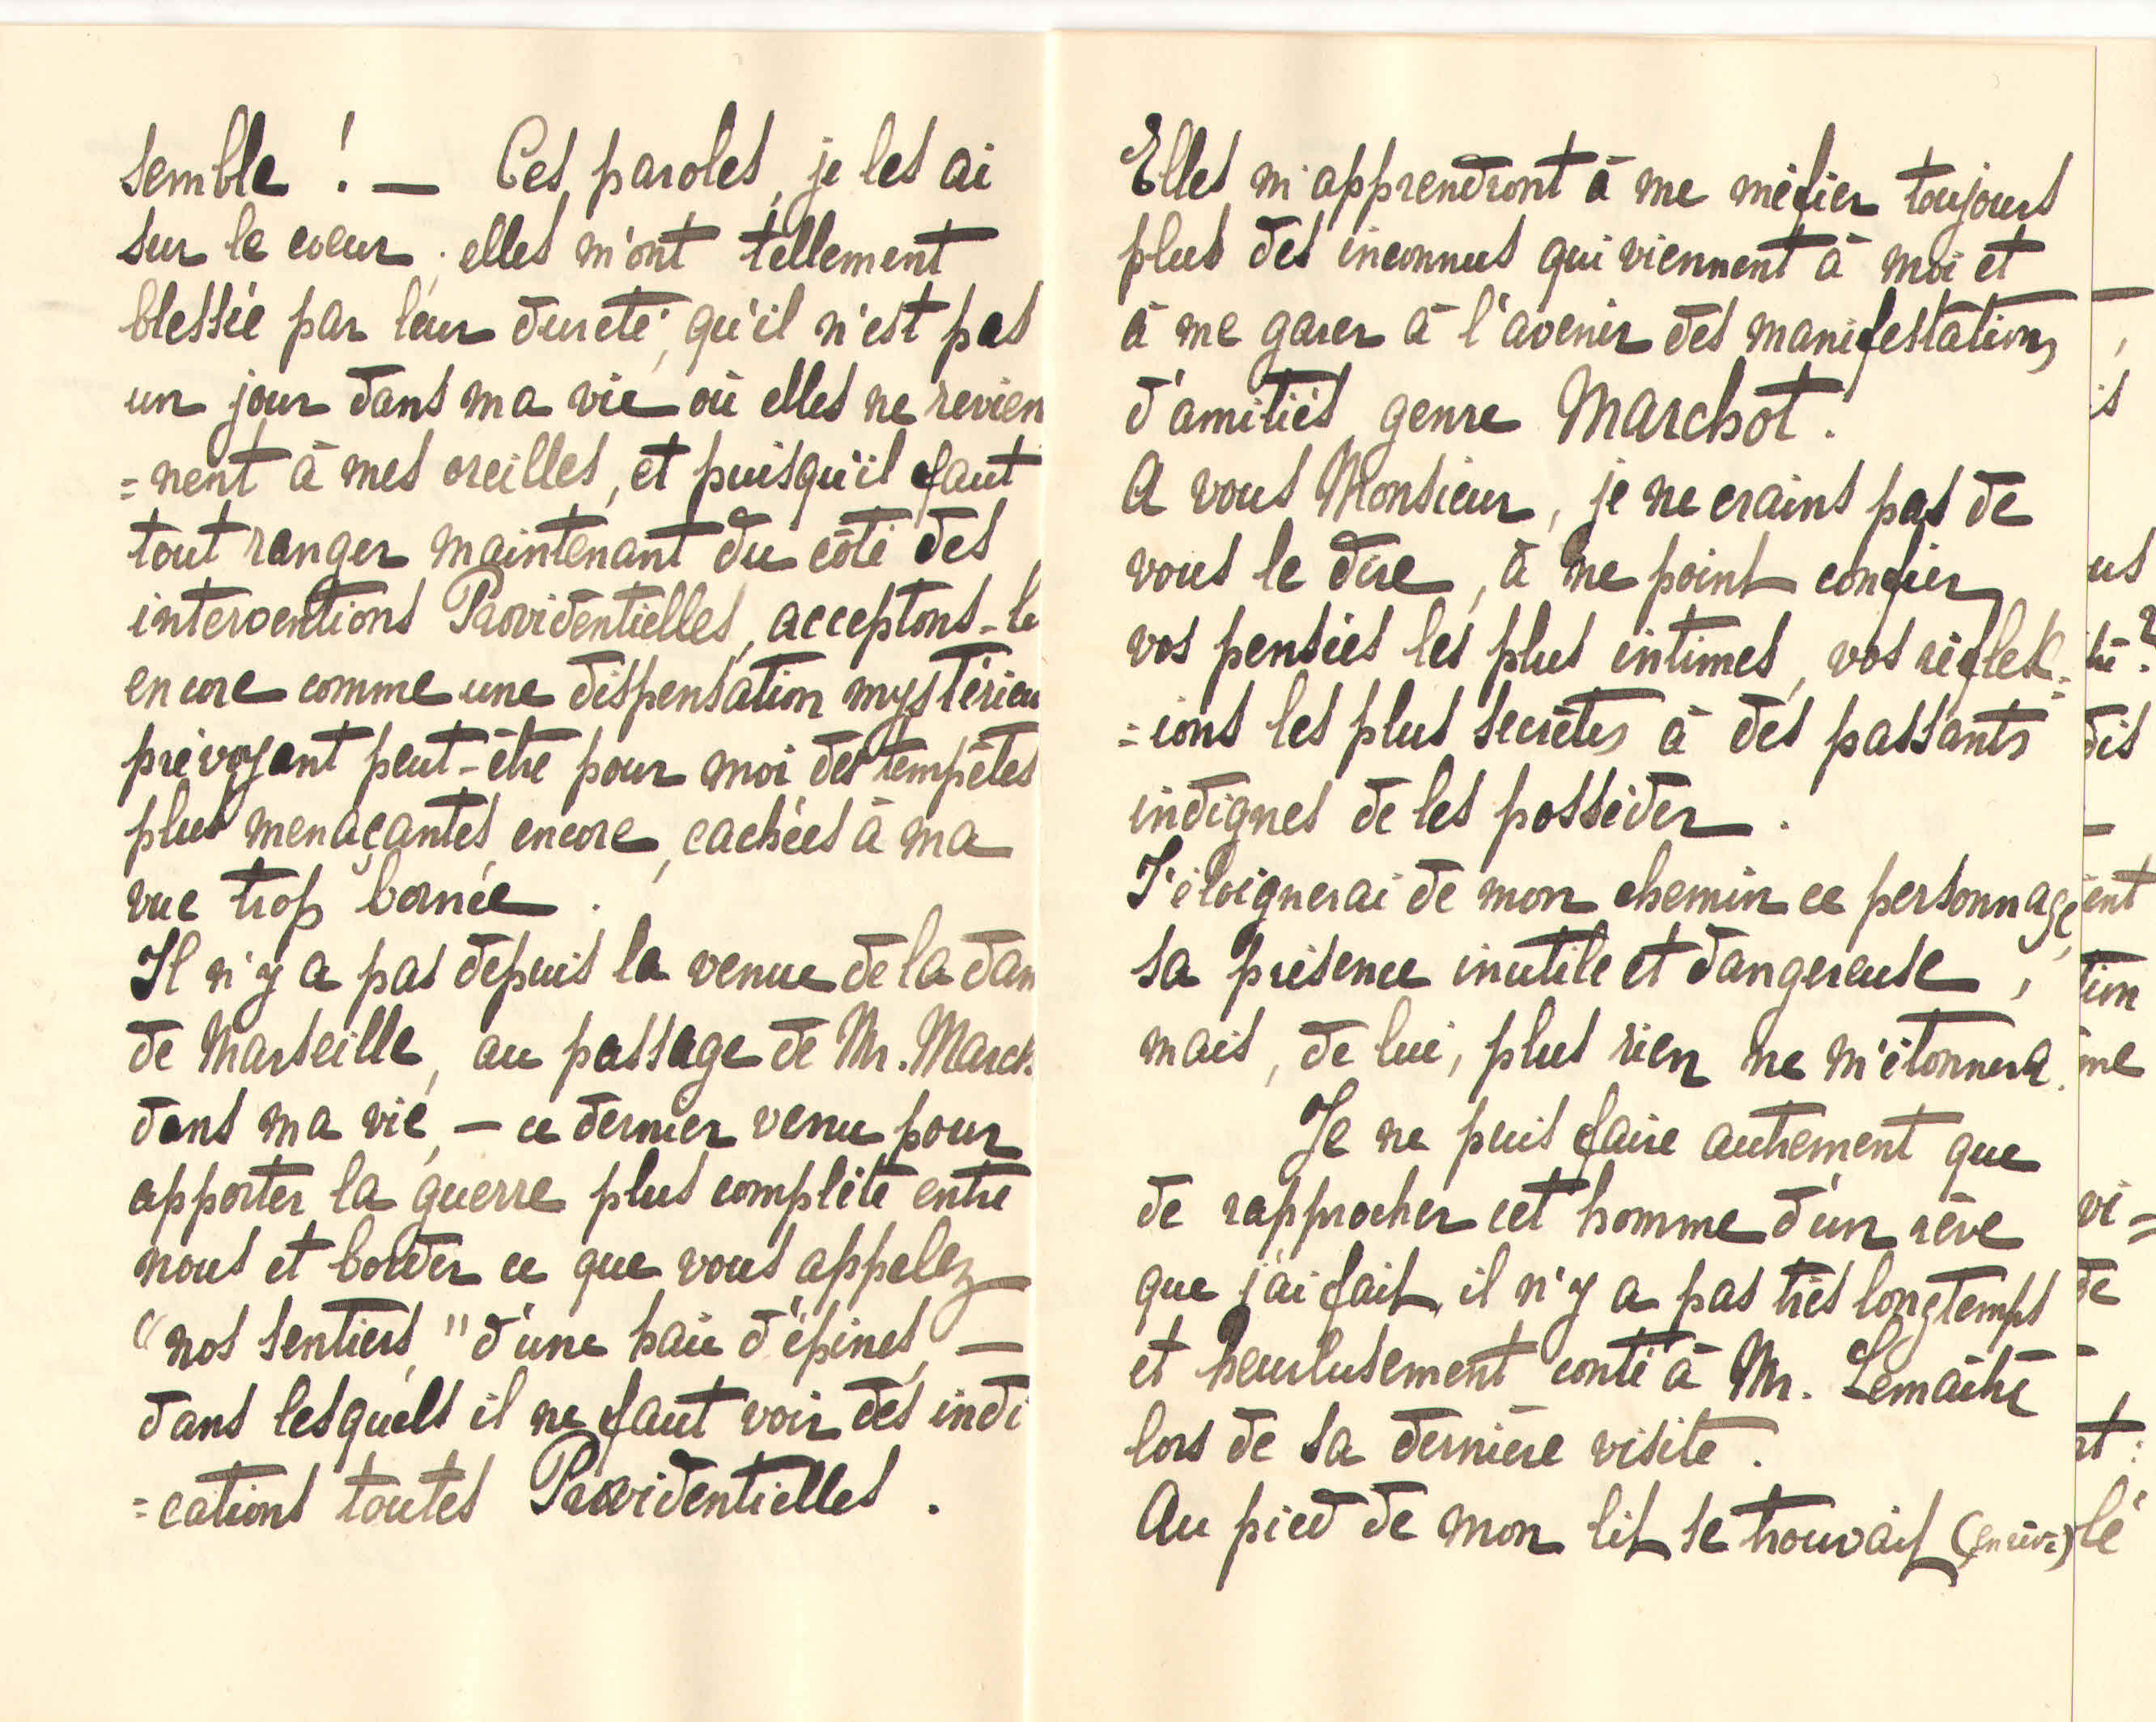 semble ! — Ces paroles, je les ai
sur le coeur ; elles m'ont tellement
blessée par leur dureté, qu'il n'est pas
un jour dans ma vie où elles ne revien
=nent à mes oreilles, et puisqu'il faut
tout ranger maintenant du côté des
interventions Providentielles, acceptons-le
encore comme une dispensation mystérieu
prévoyant peut-être pour moi des tempêtes
plus menaçantes encore, cachées à ma
vue trop bornée.
Il n'y a pas depuis la venue de la dam
de Marseille, au passage de Mr. March
dans ma vie, — ce dernier venu pour
apporter la guerre plus complète entre
nous et border ce que vous appelez
"nos sentiers," d'une haie d'épines, —
dans lesquels il ne faut voir des indi
=cations toutes Providentielles.
Elles m'apprendront à me méfier toujours
plus des inconnus qui viennent à moi et
à me garer à l'avenir des manifestations
d'amitiés genre Marchot.
A vous Monsieur, je ne crains pas de
vous le dire, à ne point confier
vos pensées les plus intimes, vos réflex=
=ions les plus secrètes à des passants
indignes de les posséder.
J'éloignerai de mon chemin ce personnage,
sa présence inutile et dangereuse ;
mais, de lui, plus rien ne m'étonnera.
Je ne puis faire autrement que
de rapprocher cet homme d'un rêve
que j'ai fait, il n'y a pas très longtemps
et heureusement conté à Mr. Lemaître
lors de sa dernière visite.
Au pied de mon lit se trouvait (en rêve)